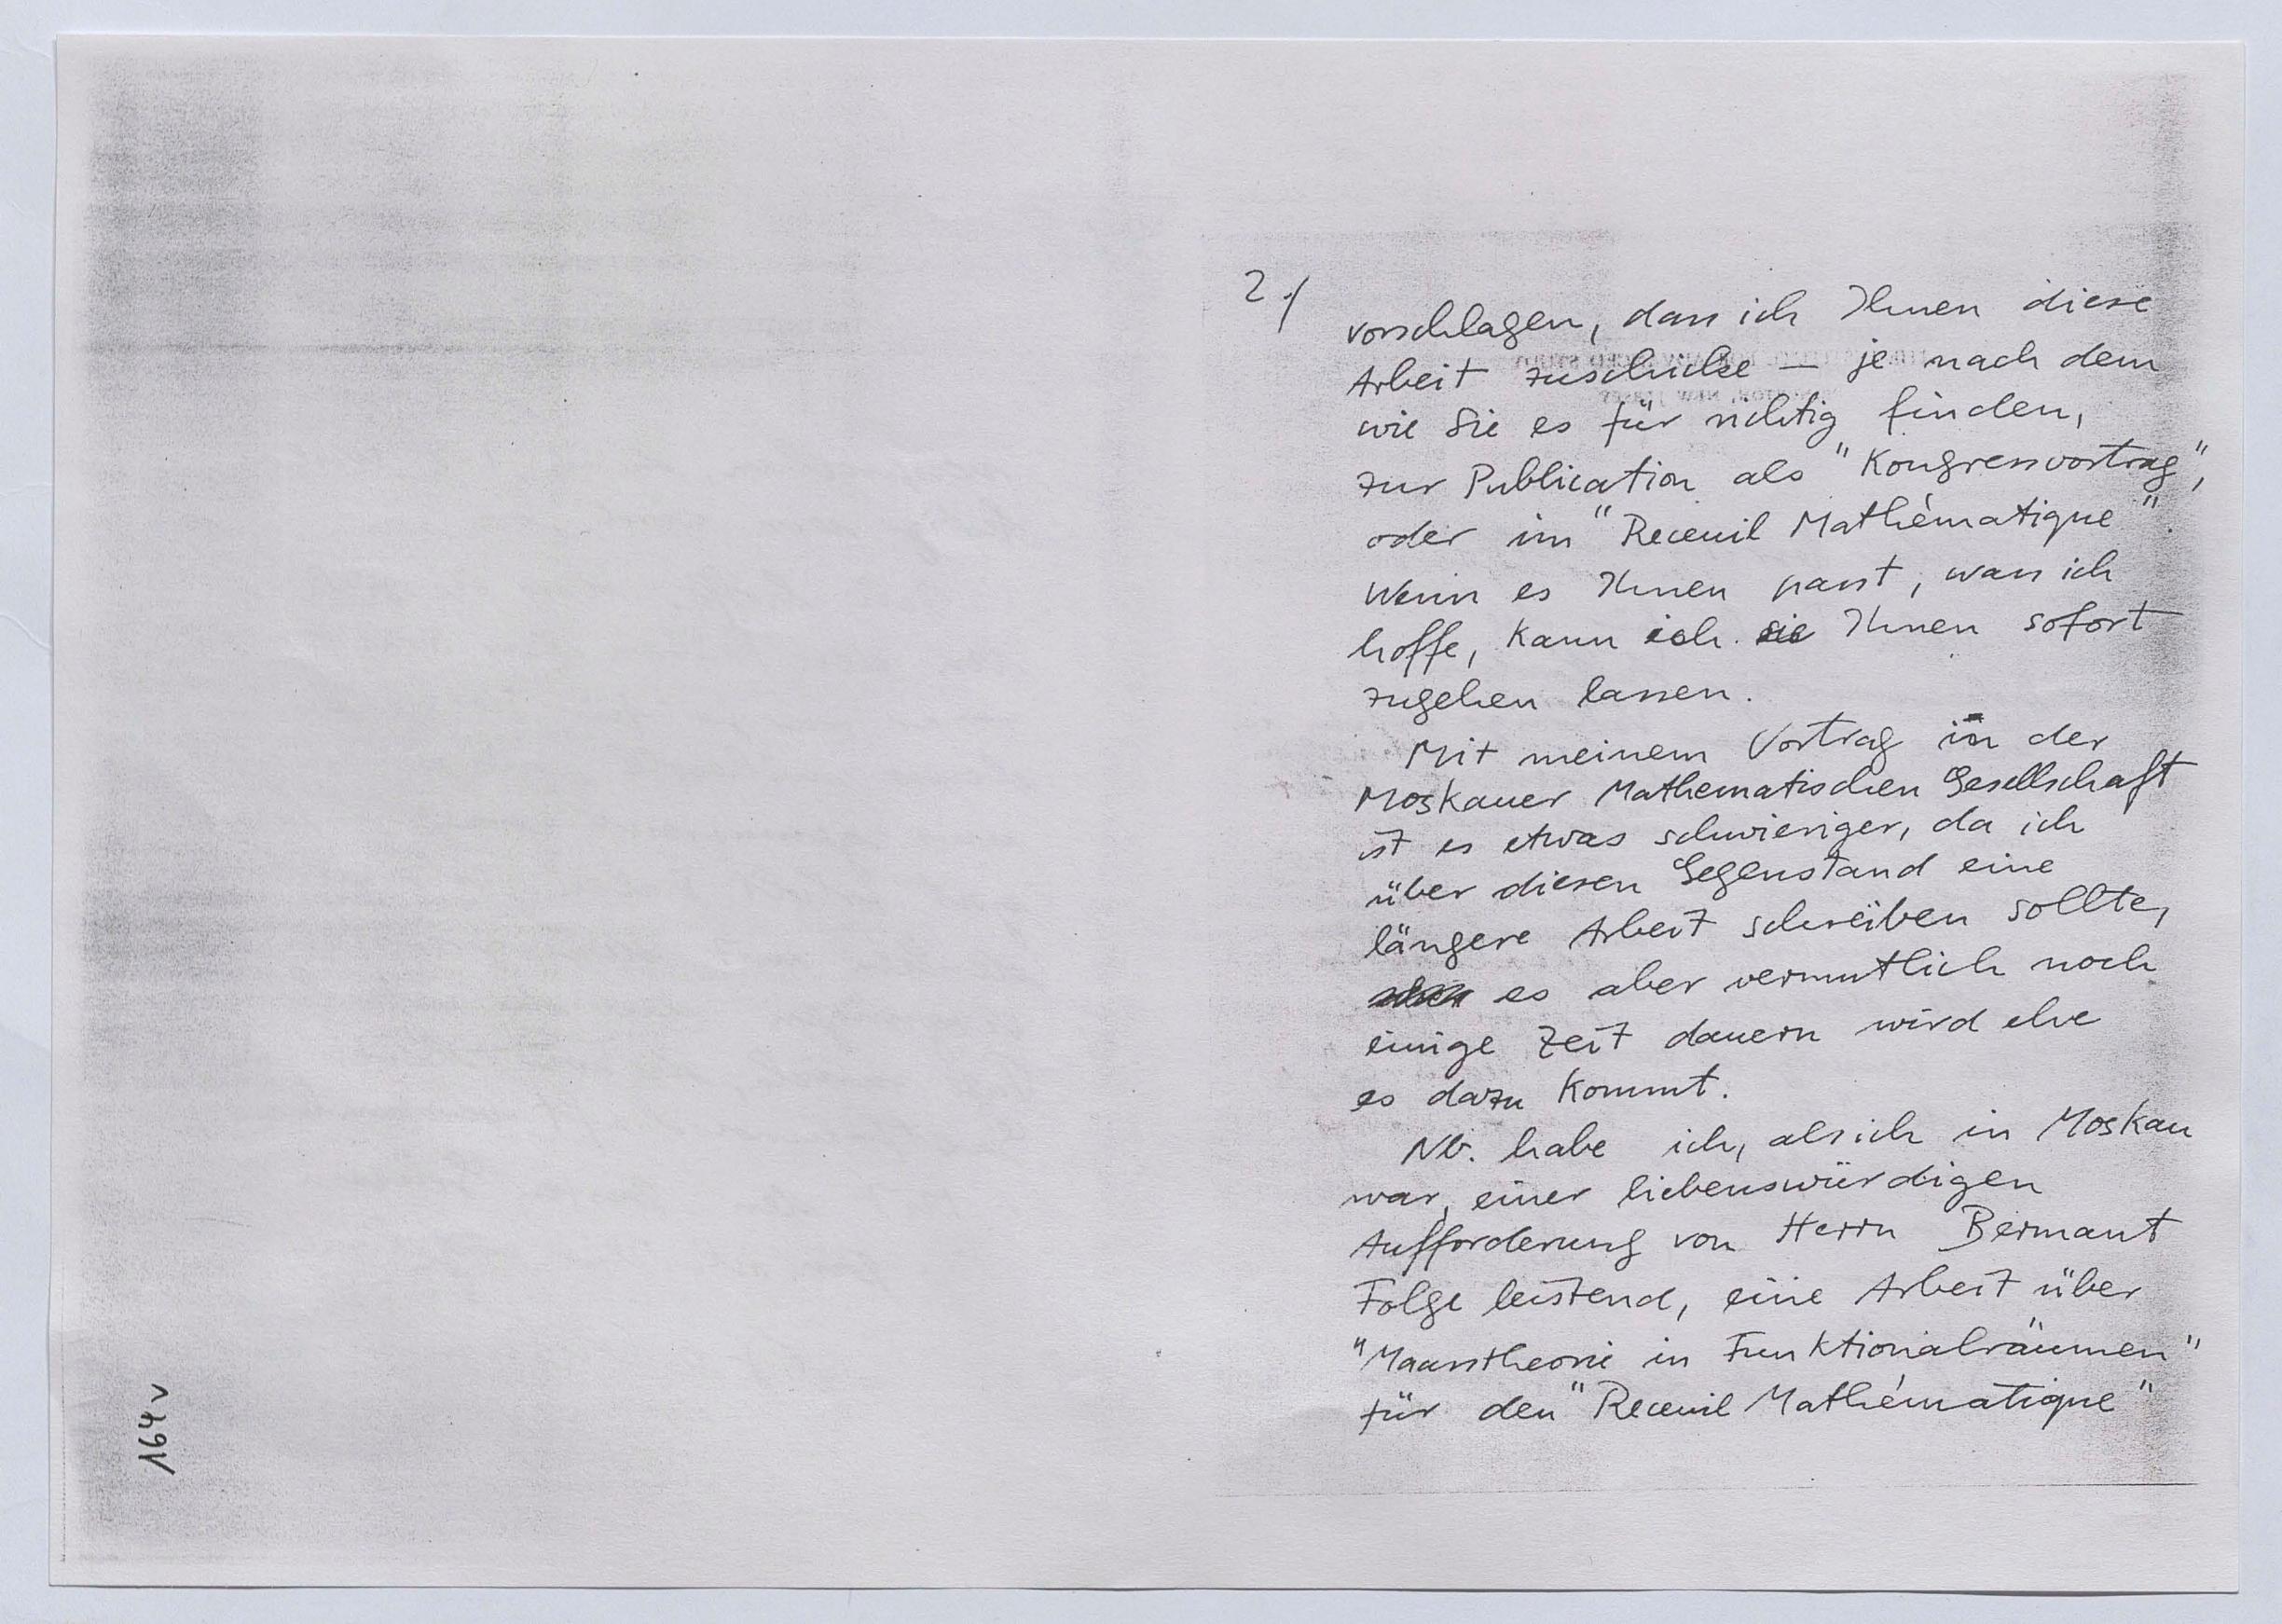 2./
vorschlagen, dass ich Ihnen diese
Arbeit zuschicke — je nach dem
wie Sie es für richtig finden,
zur Publication als "Kongressvortrag",
oder im "Receuil Mathématique".
Wenn es Ihnen passt, was ich
hoffe, kann ich sie Ihnen sofort
zugehen lassen.
Mit meinem Vortrag in der
Moskauer Mathematischen Gesellschaft
ist es etwas schwieriger, da ich
über diesen Gegenstand eine
längere Arbeit schreiben sollte,
es aber vermutlich noch
einige Zeit dauern wird ehe
es dazu kommt.
Nb. habe ich, als ich in Moskau
war, einer liebenswürdigen
Aufforderung von Herrn Bermant
Folge leistend, eine Arbeit über
"Maasstheorie in Funktionalräumen"
für den "Receuil Mathématique"
164v